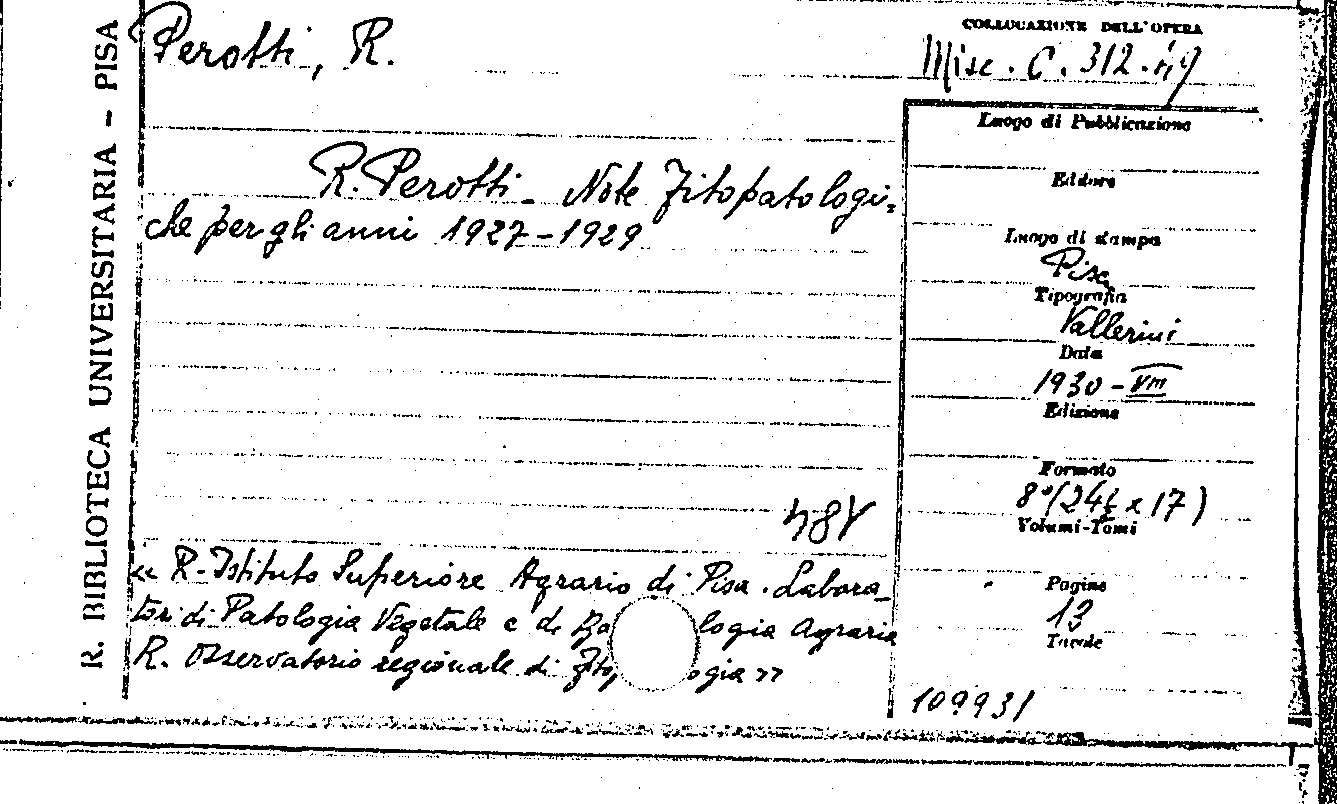 R. BIBLIOTECA UNIVERSITARIA - PISA
Perotti, R.
COLLOCAZIONE DELL'OPERA
Misc. C. 312.49
R. Perotti - Note Fitopatologi=
che per gli anni 1927-1929
Luogo di Pubblicazione
Editore
Luogo di stampa
Pisa
Tipografia
Vallerini
Data
1930 - VIII
Edizione
Formato
8° (24½ x 17)
Volumi-Tomi
Pagine
13
Tavole
109931
« R. Istituto Superiore Agrario di Pisa. Labora-
tori di Patologia Vegetale e di Ba logia Agraria
R. Osservatorio regionale di Fito ogia »